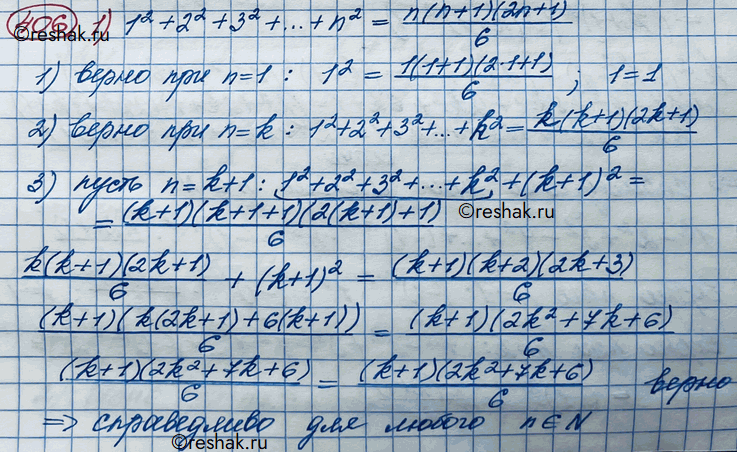 406 1) 1² + 2² + 3² + ... + n² = n(n+1)(2n+1)/6
1) верно при n=1 : 1² = 1(1+1)(2·1+1)/6 ; 1=1
©reshak.ru
2) верно при n=k : 1²+2²+3²+...+k² = k(k+1)(2k+1)/6
3) пусть n=k+1 : 1²+2²+3²+...+k²+(k+1)² =
= (k+1)(k+1+1)(2(k+1)+1)/6 ©reshak.ru
k(k+1)(2k+1)/6 + (k+1)² = (k+1)(k+2)(2k+3)/6
(k+1)(k(2k+1)+6(k+1))/6 = (k+1)(2k²+7k+6)/6
(k+1)(2k²+7k+6)/6 = (k+1)(2k²+7k+6)/6 верно
=> справедливо для любого n∈N
©reshak.ru